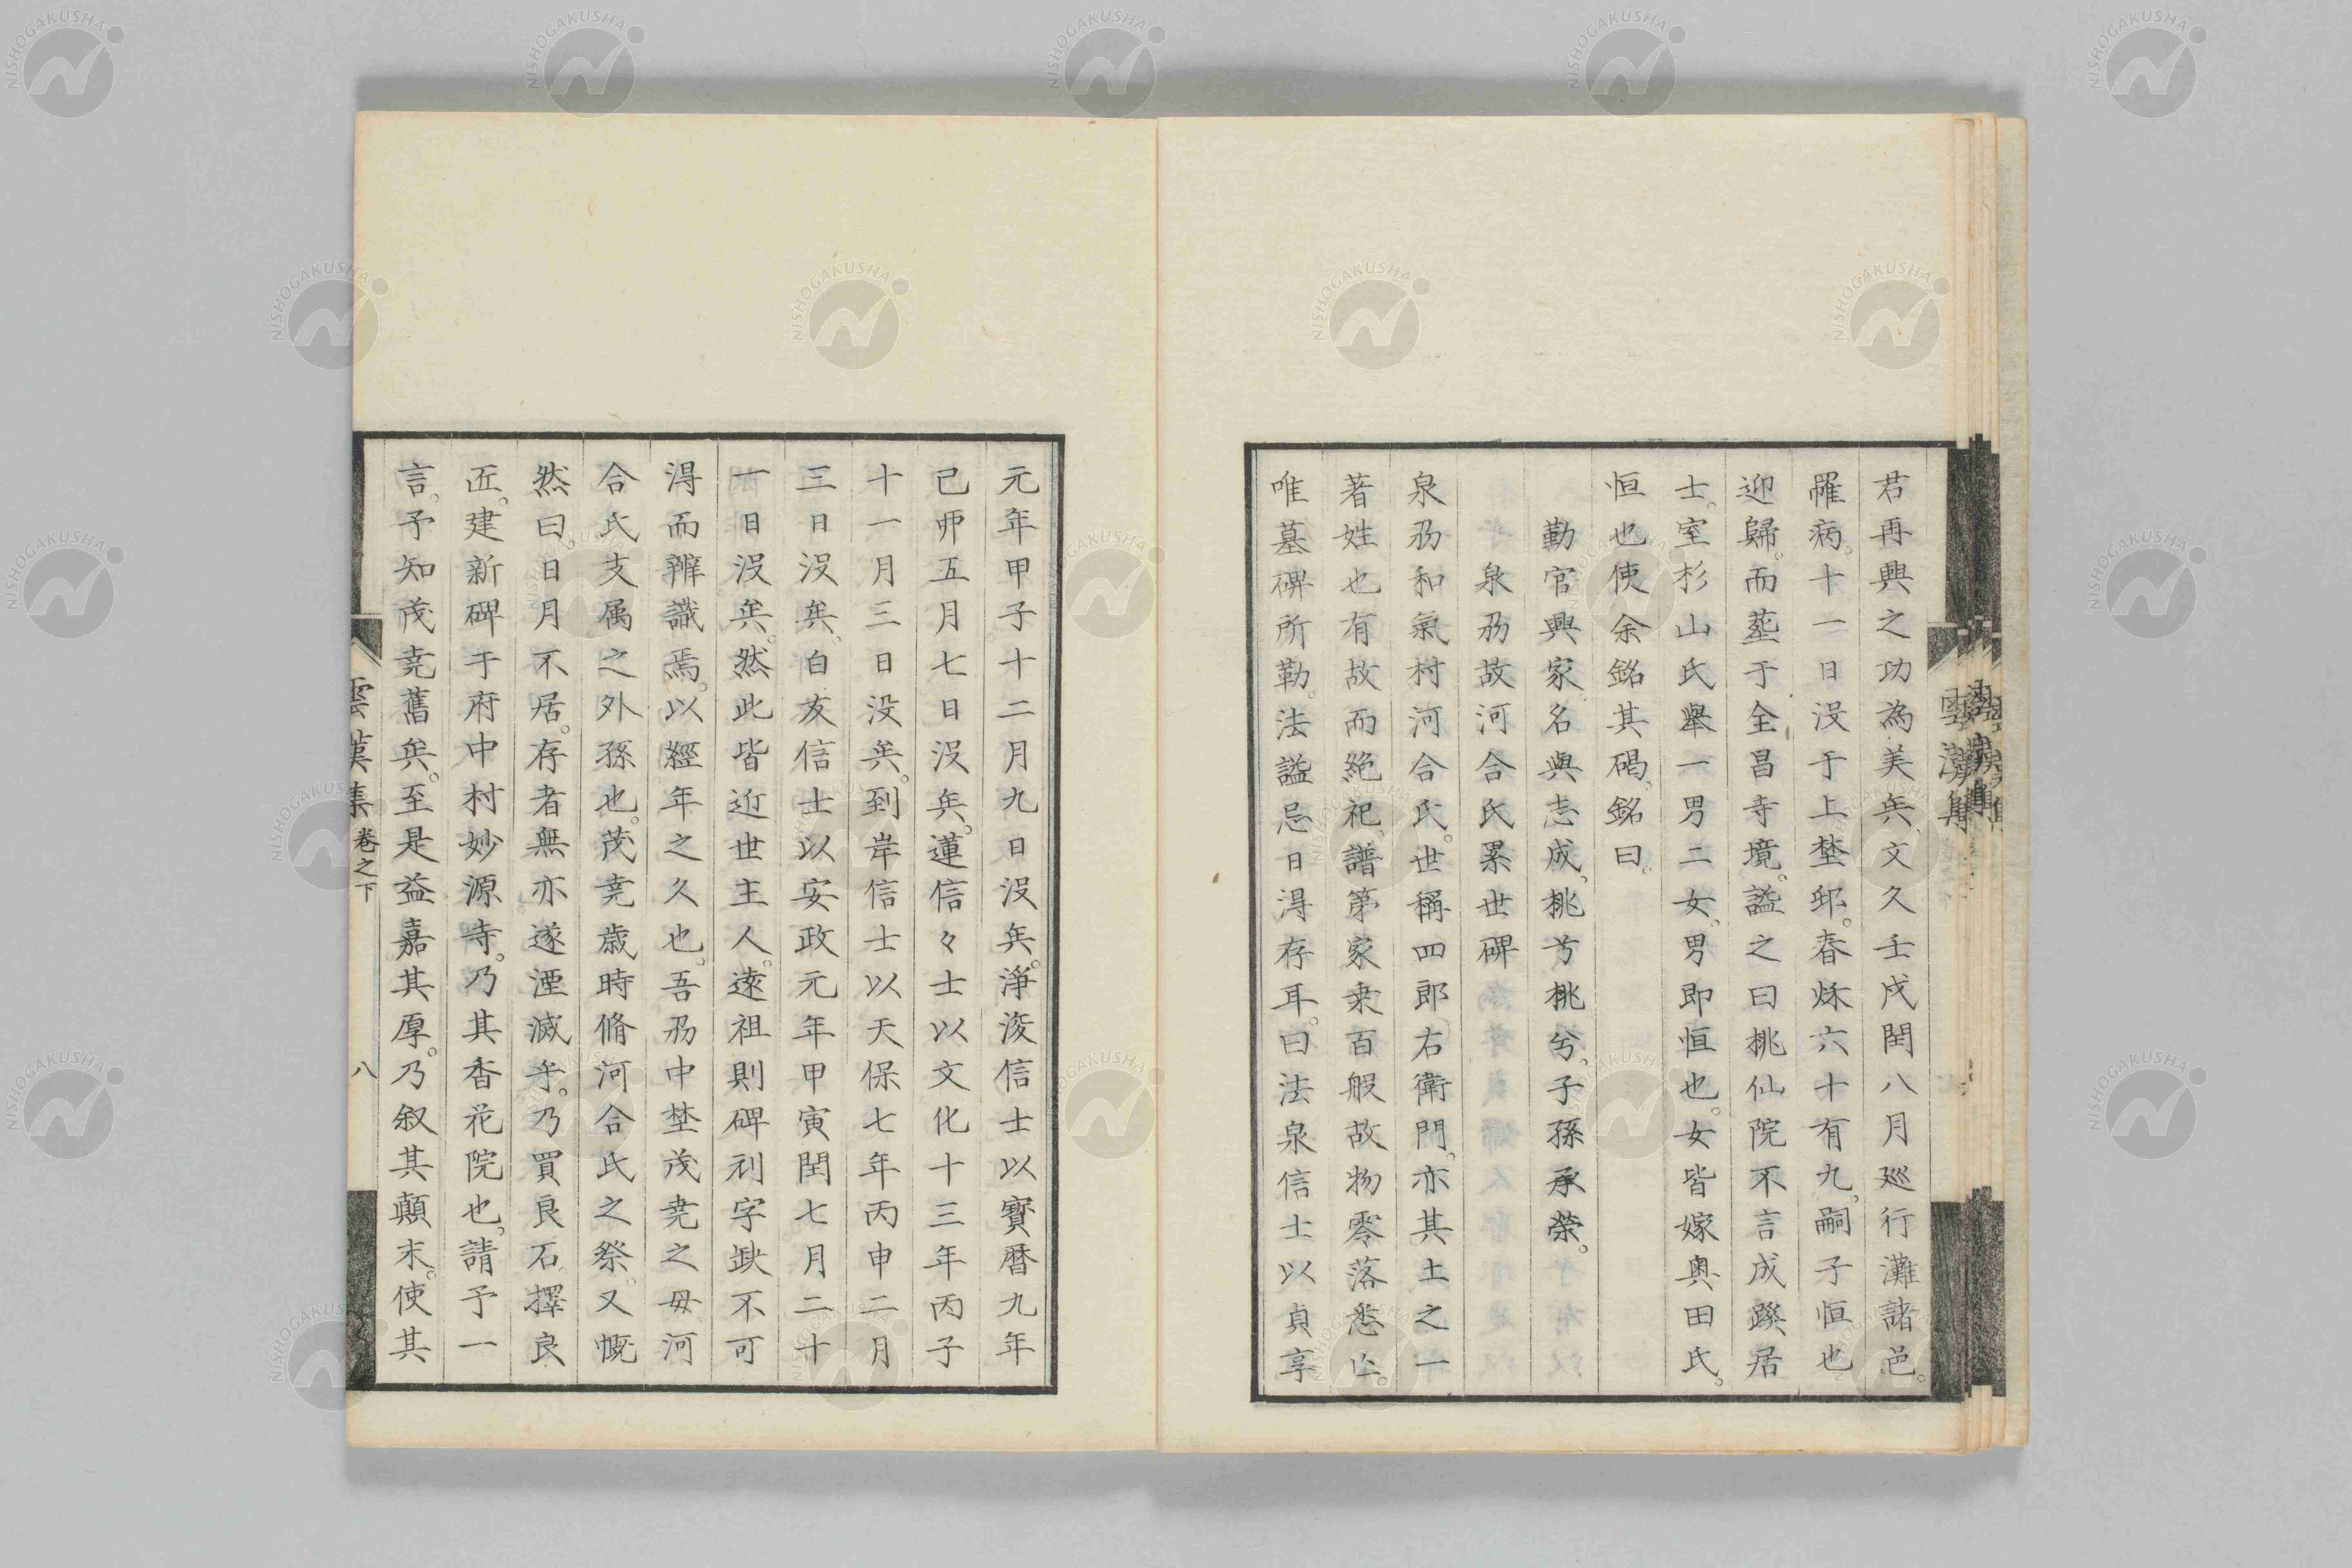 君再興之功為美矣、文久壬戌閏八月廵行灘諸邑。
罹病。十一日没于上埜邸。春秌六十有九。嗣子恒也
迎歸。而塟于全昌寺境。謚之曰桃仙院不言成蹊居
士。室杉山氏擧一男二女。男即恒也。女皆嫁奥田氏。
恒也使余銘其碣。銘曰。
勤官興家。名與志成。桃兮桃兮。子孫承榮。
泉刕故河合氏累世碑
泉刕和氣村河合氏。世稱四郎右衛門。亦其土之一
著姓也有故而絶祀。譜第家乗百般故物零落悉亾。
唯墓碑所勒。法謚忌日得存耳。曰法泉信士以貞享
元年甲子十二月九日没矣。淨滾信士以寳暦九年
己夘五月七日没矣。蓮信々士以文化十三年丙子
十一月三日没矣。到岸信士以天保七年丙申二月
三日没矣。白友信士以安政元年甲寅閏七月二十
一日没矣。然此皆近世主人。遠祖則碑刓字缺不可
得而辨識焉。以經年之久也。吾刕中埜茂尭之毋河
合氏支属之外孫也。茂尭歳時脩河合氏之祭。又慨
然曰。日月不居。存者無亦遂湮滅乎。乃買良石擇良
匠。建新碑于府中村妙源寺。乃其香花院也。請予一
言。予知茂尭舊矣。至是益嘉其厚。乃叙其顛末。使其
雲漢集 卷之下 八